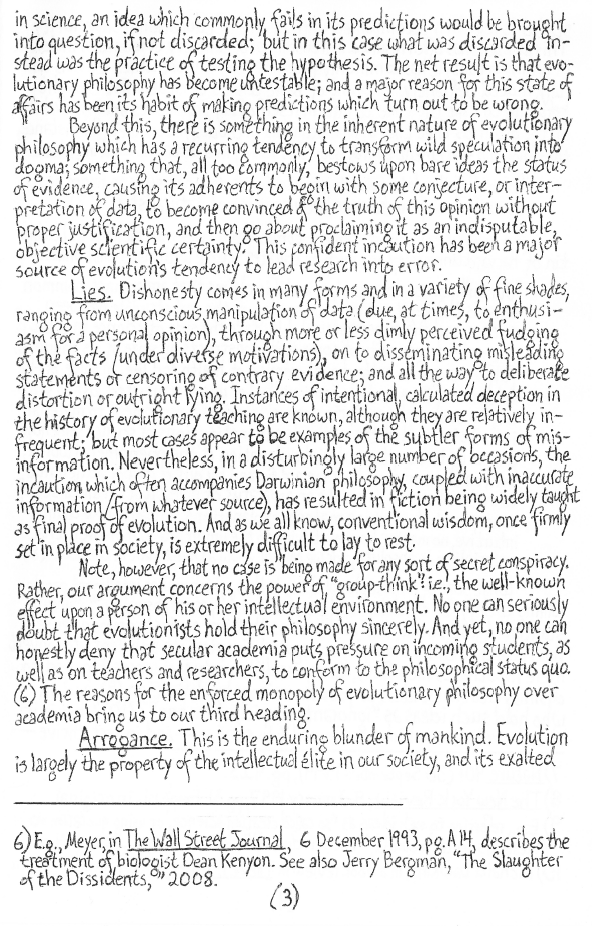 in science, an idea which commonly fails in its predictions would be brought
into question, if not discarded; but in this case what was discarded in-
stead was the practice of testing the hypothesis. The net result is that evo-
lutionary philosophy has become untestable; and a major reason for this state of
affairs has been its habit of making predictions which turn out to be wrong.
Beyond this, there is something in the inherent nature of evolutionary
philosophy which has a recurring tendency to transform wild speculation into
dogma; something that, all too commonly, bestows upon bare ideas the status
of evidence, causing its adherents to begin with some conjecture, or inter-
pretation of data, to become convinced of the truth of this opinion without
proper justification, and then go about proclaiming it as an indisputable,
objective scientific certainty. This confident incaution has been a major
source of evolution's tendency to lead research into error.
Lies. Dishonesty comes in many forms and in a variety of fine shades,
ranging from unconscious manipulation of data (due, at times, to enthusi-
asm for a personal opinion), through more or less dimly perceived fudging
of the facts (under diverse motivations), on to disseminating misleading
statements or censoring of contrary evidence; and all the way to deliberate
distortion or outright lying. Instances of intentional, calculated deception in
the history of evolutionary teaching are known, although they are relatively in-
frequent; but most cases appear to be examples of the subtler forms of mis-
information. Nevertheless, in a disturbingly large number of occasions, the
incaution which often accompanies Darwinian philosophy, coupled with inaccurate
information (from whatever source), has resulted in fiction being widely taught
as final proof of evolution. And as we all know, conventional wisdom, once firmly
set in place in society, is extremely difficult to lay to rest.
Note, however, that no case is being made for any sort of secret conspiracy.
Rather, our argument concerns the power of "group-think": i.e., the well-known
effect upon a person of his or her intellectual environment. No one can seriously
doubt that evolutionists hold their philosophy sincerely. And yet, no one can
honestly deny that secular academia puts pressure on incoming students, as
well as on teachers and researchers, to conform to the philosophical status quo.
(6) The reasons for the enforced monopoly of evolutionary philosophy over
academia bring us to our third heading.
Arrogance. This is the enduring blunder of mankind. Evolution
is largely the property of the intellectual élite in our society, and its exalted
6) E.g., Meyer, in The Wall Street Journal, 6 December 1993, pg. A14, describes the
treatment of biologist Dean Kenyon. See also Jerry Bergman, "The Slaughter
of the Dissidents," 2008.
(3)